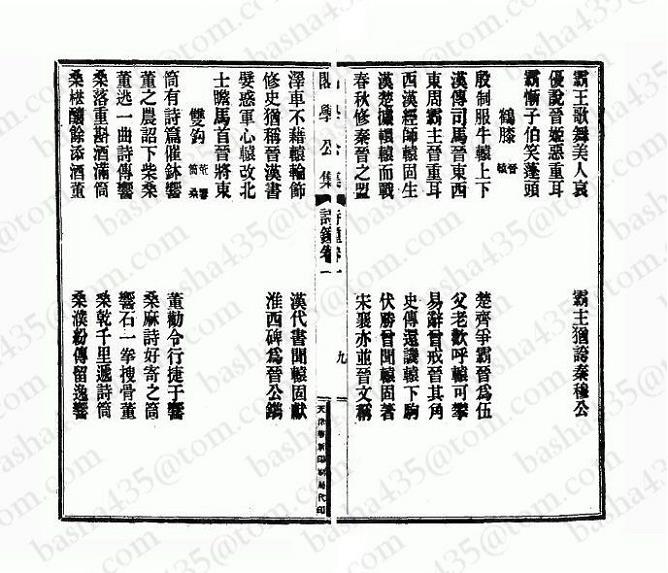 霸王歌舞美人哀　霸主猶誇秦穆公
優說晉姬惡重耳
霸慚子伯笑蓬頭
鶴膝 晉轅
殷制服牛轅上下　楚齊爭霸晉爲伍
漢傳司馬晉東西　父老歡呼轅可攀
東周霸主晉重耳　易辭曾戒晉其角
西漢經師轅固生　史傳還譏轅下駒
漢楚據轘轅而戰　伏勝曾聞轅固著
春秋修秦晉之盟　宋襄亦並晉文稱
閣學公集　詩鐘卷一　九
澤車不藉轅輪飾　漢代書聞轅固獻
修史猶稱晉漢書　淮西碑爲晉公鐫
嬖惑軍心轅改北
士瞻馬首晉將東
雙鈎
筒有詩篇催鉢響　董勸令行捷于響
董之農詔下柴桑　桑麻詩好寄之筒
董逃一曲詩傳響　響石一拳搜骨董
桑落重斟酒滿筒　桑乾千里遞詩筒
桑椹釀餘添酒董　桑濮紛傳留逸響
basha435@tom.com